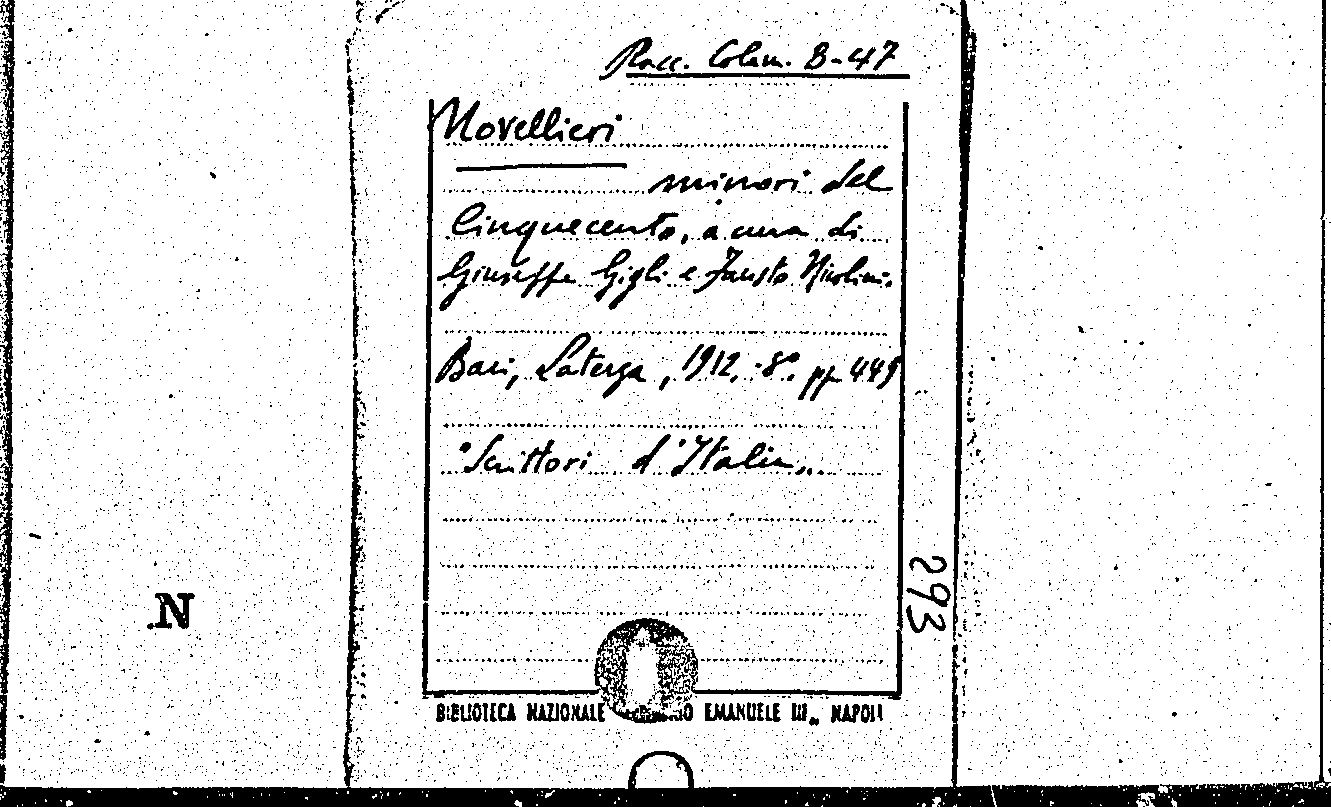 Racc. Colem. B-47
Novellieri
minori del
Cinquecento, a cura di
Giuseppe Gigli e Fausto Nicolini.
Bari, Laterza, 1912. 8°. pp 449
"Scrittori d'Italia"
293
N
BIBLIOTECA NAZIONALE EMANUELE III„ NAPOLI